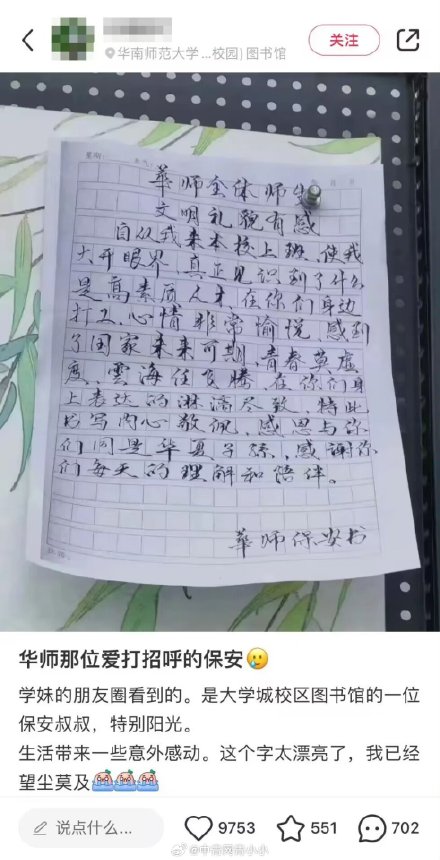 华南师范大学...校园) 图书馆
关注
星期:
華师全体师生
文明礼貌有感
自从我来本校上班,使我
大开眼界,真正见识到了什么
是高素质人才,在你们身边
打工,心情非常愉悦,感到
了国家未来可期,青春莫虚
度,雲海任飞腾,在你们身
上表达的淋漓尽致,特此
书写内心敬佩,感恩与你
们同是华夏子孫,感谢你
们每天的理解和陪伴。
華师保安书
华师那位爱打招呼的保安
学妹的朋友圈看到的。是大学城校区图书馆的一位
保安叔叔,特别阳光。
生活带来一些意外感动。这个字太漂亮了,我已经
望尘莫及
说点什么...
9753
551
702
@中青网青小小